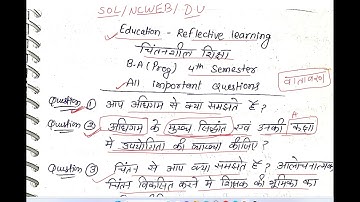 SOL/NCWEB/DU
Education - Reflective learning
चिंतनशील शिक्षा
B.A (Prog) 4th Semester
All important Questions
वातावरण
Question ① आप अधिगम से क्या समझते हैं ?
Question ② अधिगम के मुख्य सिद्धांत एवं उनकी कक्षा
A
में उपयोगिता की व्याख्या कीजिए ?
Question ③ चिंतन से आप क्या समझते हैं ? आलोचनात्मक
चिंतन विकसित करने में शिक्षक की भूमिका का